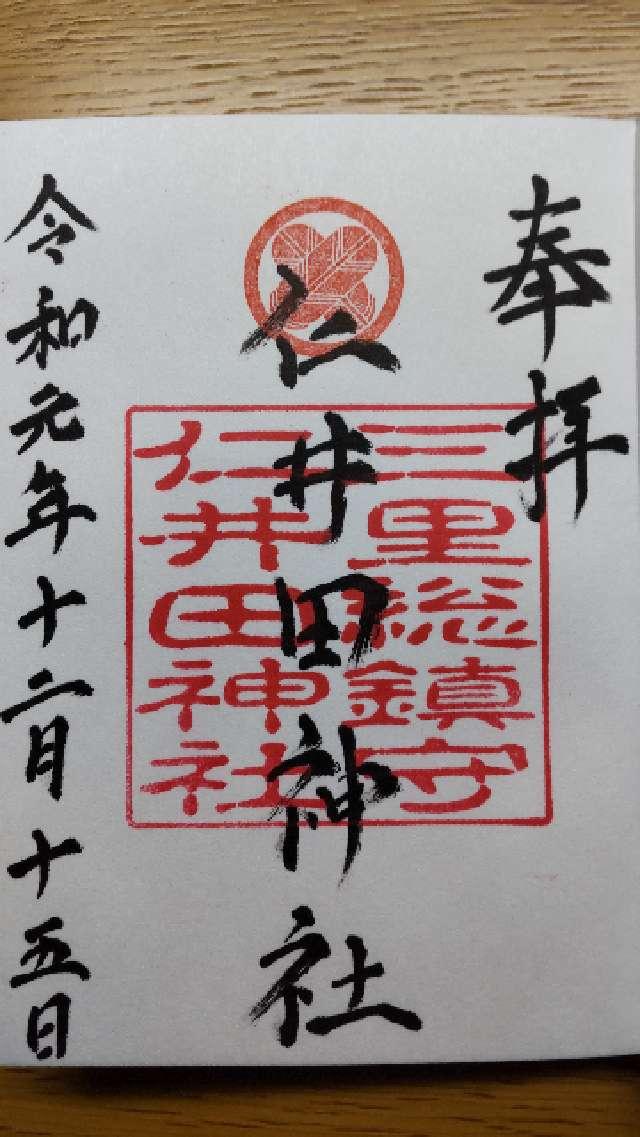 奉拝
三里総鎮守
仁井田神社
仁井田神社
令和元年十二月十五日